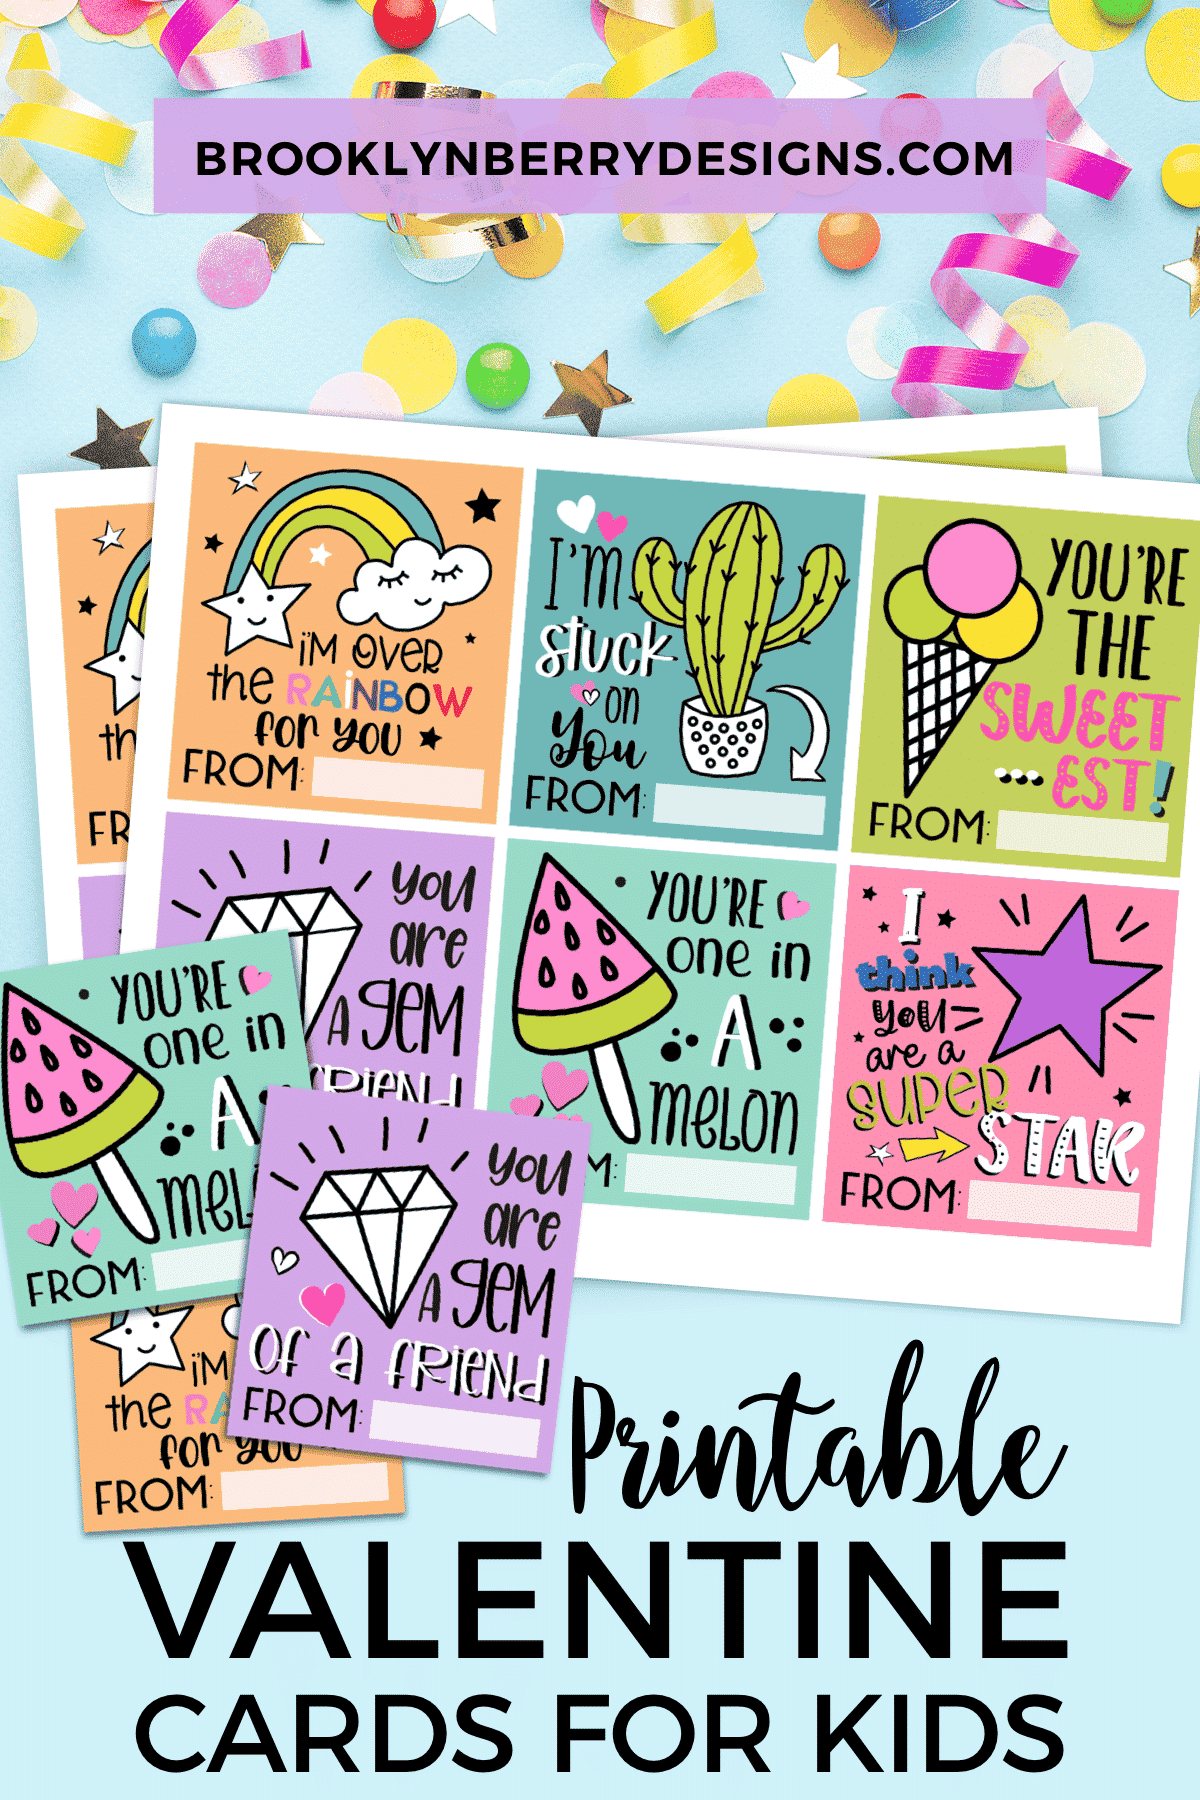 BROOKLYNBERRYDESIGNS.COM
i'm over
the RAiNBOW
for you
FROM:
I'm
stuck
on
you
FROM:
YOU'RE
THE
SWEET
...EST!
FROM:
th
FR
you
are
A gem
FRIEND
M:
YOU'RE
one in
A
melon
I
think
you
are a
SUPER
STAR
FROM:
YOU'RE
one in
A
mel
FROM:
you
are
A gem
of a friend
FROM:
i'm
the RA
for you
FROM:
Printable
VALENTINE
CARDS FOR KIDS